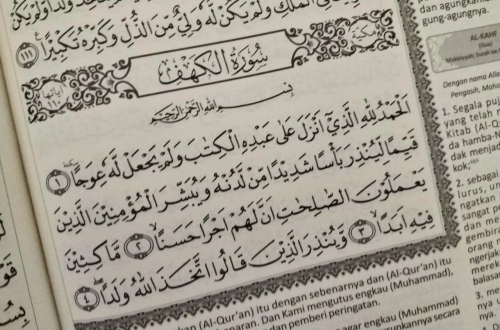 الملك ولم يكن له ولي من الذل وكبره تكبيرا ۝١١١
مكية
سورة الكهف
آياتها ١١٠
بسم الله الرحمن الرحيم
الحمد لله الذي انزل على عبده الكتب ولم يجعل له عوجا ۝١
قيما لينذر بأسا شديدا من لدنه ويبشر المؤمنين الذين
يعملون الصلحت ان لهم اجرا حسنا ۝٢ ماكثين
فيه ابدا ۝٣ وينذر الذين قالوا اتخذ الله ولدا ۝٤
dan agungkan
gung-agungnya.
AL-KAHF
(Gua)
Dengan nama Alla
Pengasih, Maha
1. Segala pu
yang telah m
Kitab (Al-Q
da hamba
dak menjad
kok;
2. sebagai
lurus, u
ngatkan
sangat
dan m
gembira
orang
ngerjak
mereka
3. me
nya.
(Al-Qur'an) itu dengan sebenarnya dan (Al-Qur'an) itu
Dan Kami mengutus engkau (Muhammad),
dan pemberi peringatan.